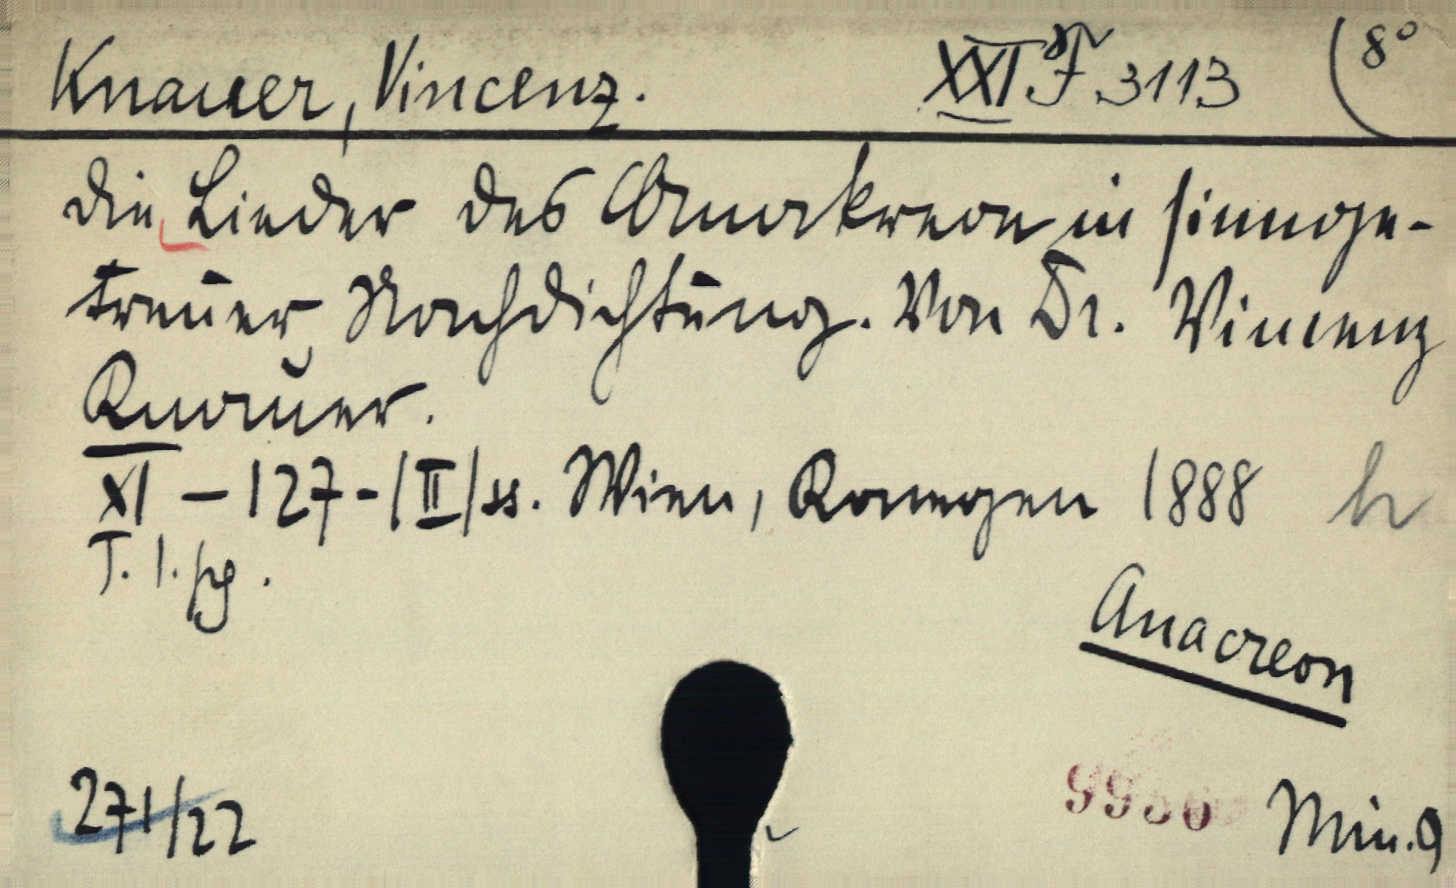 Knauer, Vincenz. XXI. F. 3113 (8°
Die Lieder des Anakreon in sinnge-
treuer Nachdichtung. Von Dr. Vincenz
Knauer.
XI - 127 - |II| ss. Wien, Konegen 1888
T. l. sg.
Anacreon
271/22 Min. 9